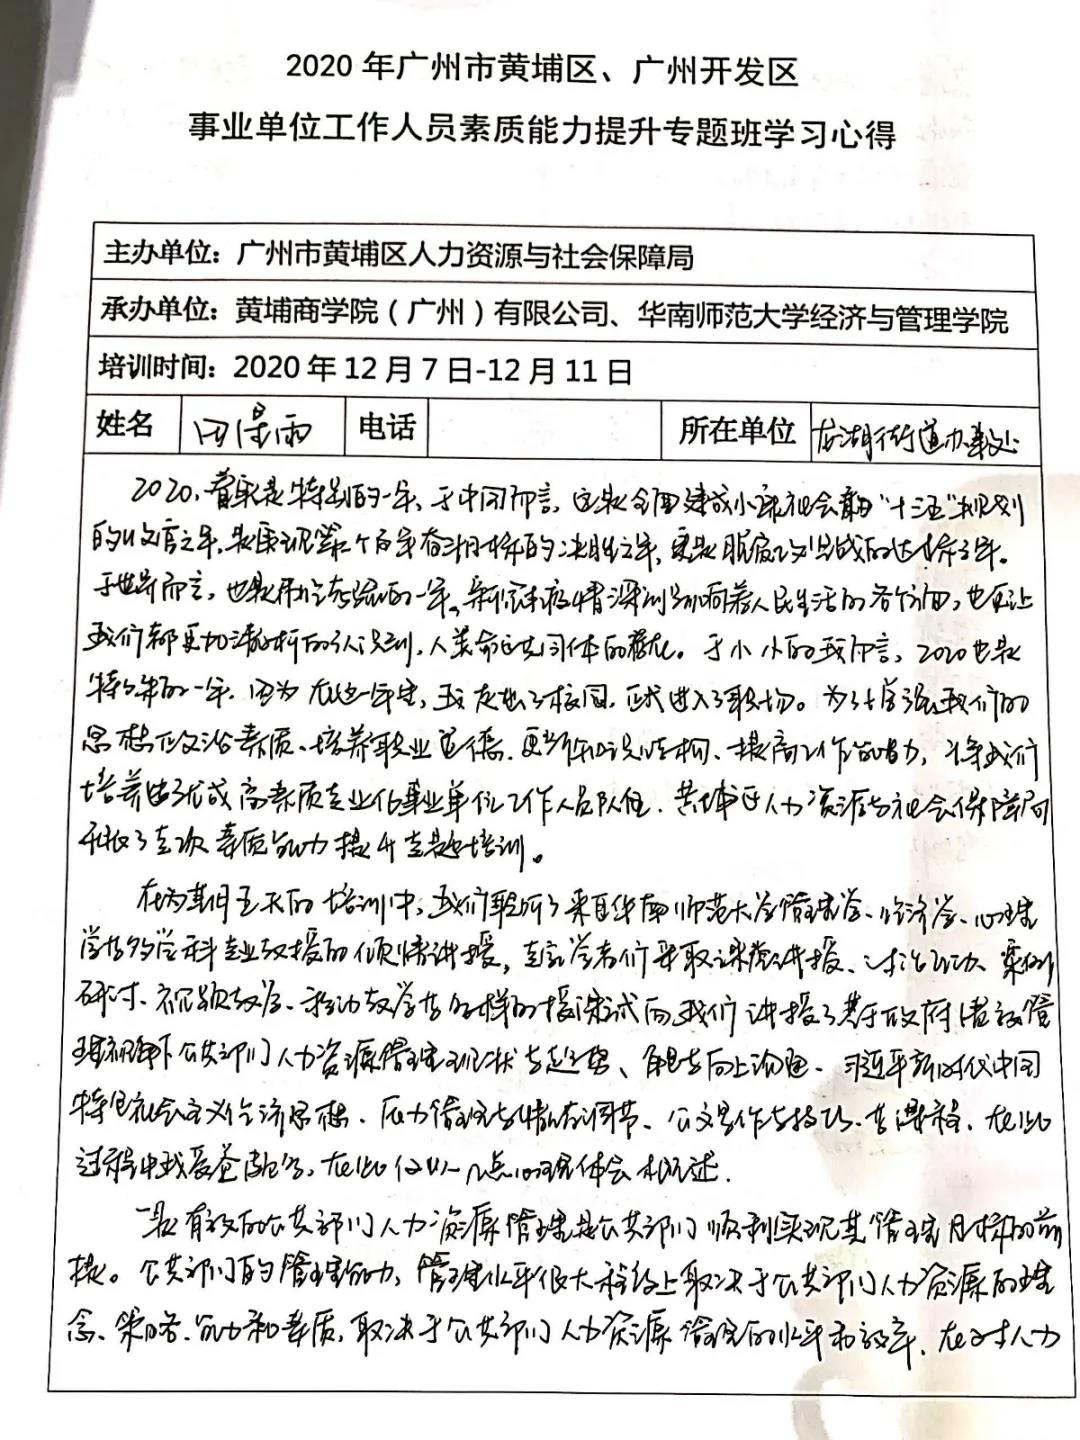 2020年广州市黄埔区、广州开发区
事业单位工作人员素质能力提升专题班学习心得
主办单位：广州市黄埔区人力资源与社会保障局
承办单位：黄埔商学院（广州）有限公司、华南师范大学经济与管理学院
培训时间：2020年12月7日-12月11日
姓名 田景雨 电话 所在单位 龙湖街道办事处
2020，着实是特别的一年，于中国而言，这是全面建成小康社会和"十三五"规划
的收官之年，是实现第一个百年奋斗目标的决胜之年，更是脱贫攻坚战的达标之年。
于世界而言，也是不太流的一年，新冠病疫情深刻影响着人民生活的各方面，也更让
我们都更加清晰的认识到，人类命运共同体的。于小小的我而言，2020也是
特殊的一年，因为在这一年里，我走出了校园，正式进入了职场。为了加强我们的
思想政治素质、培养职业道德、更新知识结构、提高工作能力，将我们
培养成高素质专业化事业单位工作人员队伍，黄埔区人力资源与社会保障局
开展了这次素质能力提升专题培训。
在为期五天的培训中，我们聆听了来自华南师范大学管理学、经济学、心理
学等多学科专业教授的倾情讲授，这些学者们采取课堂讲授、讨论互动、案例
研讨、视频教学、移动教学等多样的授课式向我们讲授了基于政府绩效管
理视野下公共部门人力资源管理现状与趋势、自我与向上沟通、习近平新时代中国
特色社会主义经济思想、压力管理与情绪调节、公文写作与技巧等课程，在此
过程中我受益匪浅，在此仅以几点心得体会概述。
一是有效的公共部门人力资源管理是公共部门顺利实现其管理目标的前
提。公共部门的管理能力，管理水平很大程度上取决于公共部门人力资源的理
念、策略、能力和素质，取决于公共部门人力资源管理的水平和效率，在对人力